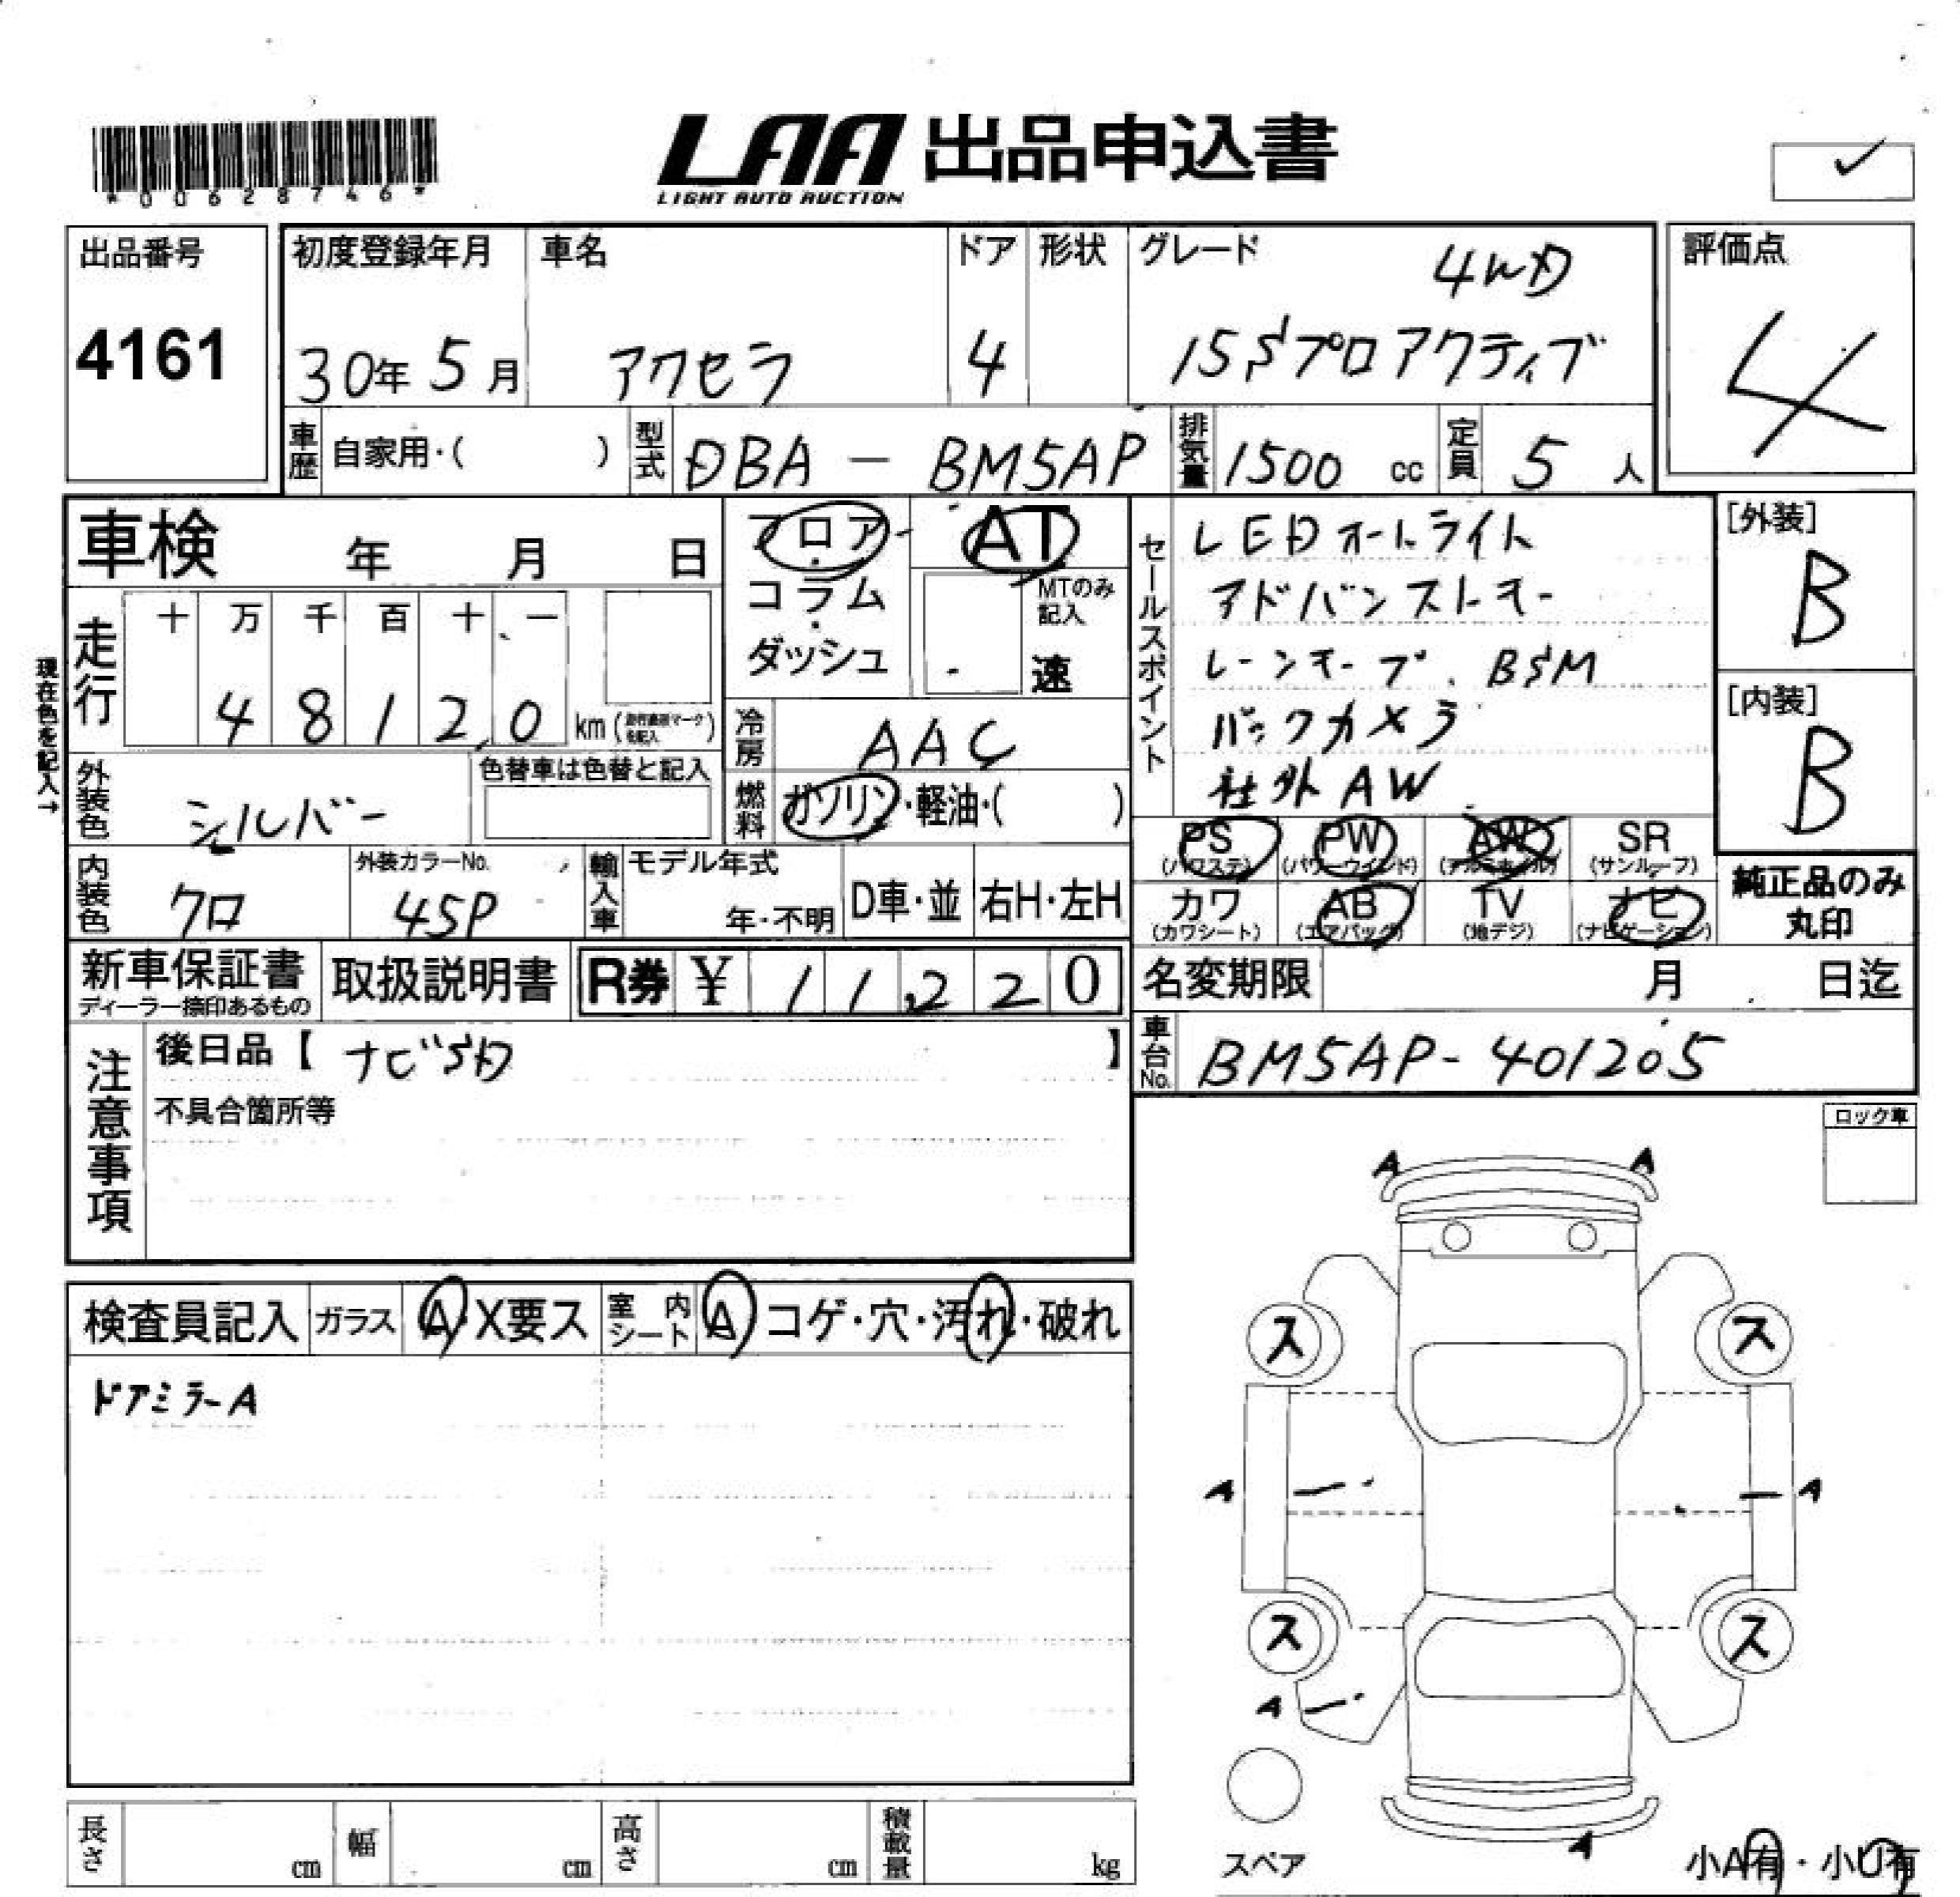 *00628746*
LAA 出品申込書
LIGHT AUTO AUCTION
✓
出品番号
4161
初度登録年月
30年5月
車名
アクセラ
ドア
4
形状
グレード
4WD
15Sプロアクティブ
評価点
4
車歴
自家用・( )
型式
DBA - BM5AP
排気量
1500 cc
定員
5 人
車検 年 月 日
現在色を記入→
走行
十 万 千 百 十 一
4 8 1 2 0 km
フロア・
コラム・
ダッシュ
AT
MTのみ記入
速
冷房
AAC
燃料
ガソリン・軽油・( )
外装色
シルバー
色替車は色替と記入
内装色
クロ
外装カラーNo.
45P
輸入車
モデル年式
年・不明
D車・並
右H・左H
セールスポイント
LEDオートライト
アドバンストキー
レーンキープ、BSM
バックカメラ
社外AW
[外装]
B
[内装]
B
PS
(パワステ)
PW
(パワーウインド)
AW
(アルミホイル)
SR
(サンルーフ)
カワ
(カワシート)
AB
(エアバック)
TV
(地デジ)
ナビ
(ナビゲーション)
純正品のみ
丸印
新車保証書
ディーラー捺印あるもの
取扱説明書
R券 ¥ 11,220
名変期限 月 日迄
車台No.
BM5AP-401205
注意事項
後日品【 ナビSD 】
不具合箇所等
ロック車
検査員記入
ガラス
A・X要ス
室内シート
A コゲ・穴・汚れ・破れ
ドアミラーA
A
A
ス
ス
A
A
ス
ス
A
スペア
A
小A有・小U有
長さ cm
幅 cm
高さ cm
積載量 kg